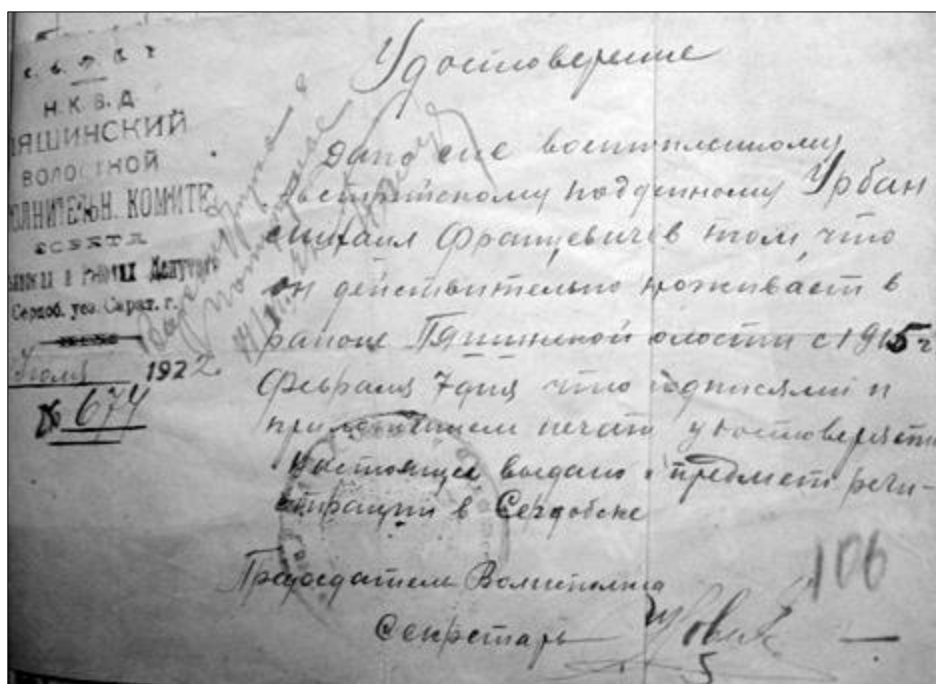 Удостоверение
Н.К.В.Д
ЯШИНСКИЙ
ВОЛОСТНОЙ
ОЛНИТЕЛЬН. КОМИТЕ
СОВЕТА
Депутатов
Сердоб. уез. Сарат. г.
Июля 1922.
№ 674
Дано сие военнопленному
Австрийскому подданному Урбан
Михаил Францевич в том, что
он действительно проживает в
районе Пяшинской волости с 1915 г
Февраля 7 дня что подписями и
приложением печати удостоверяется
Настоящее выдано в предмет реги-
страции в Сердобске
106
Председатель Волисполкома
Секретарь